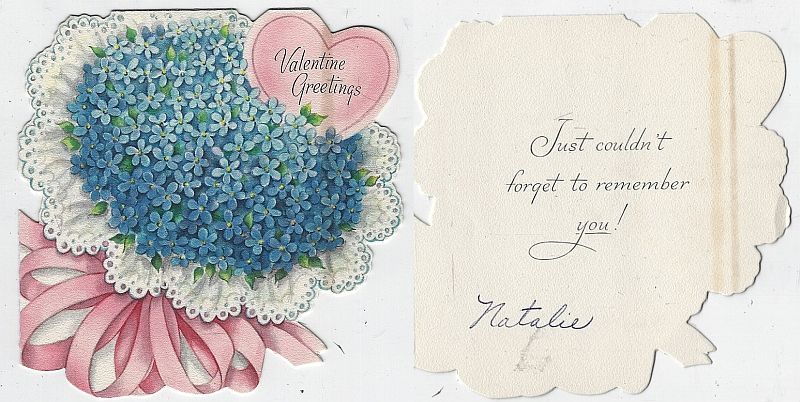 Valentine
Greetings
Just couldn't
forget to remember
you!
Natalie